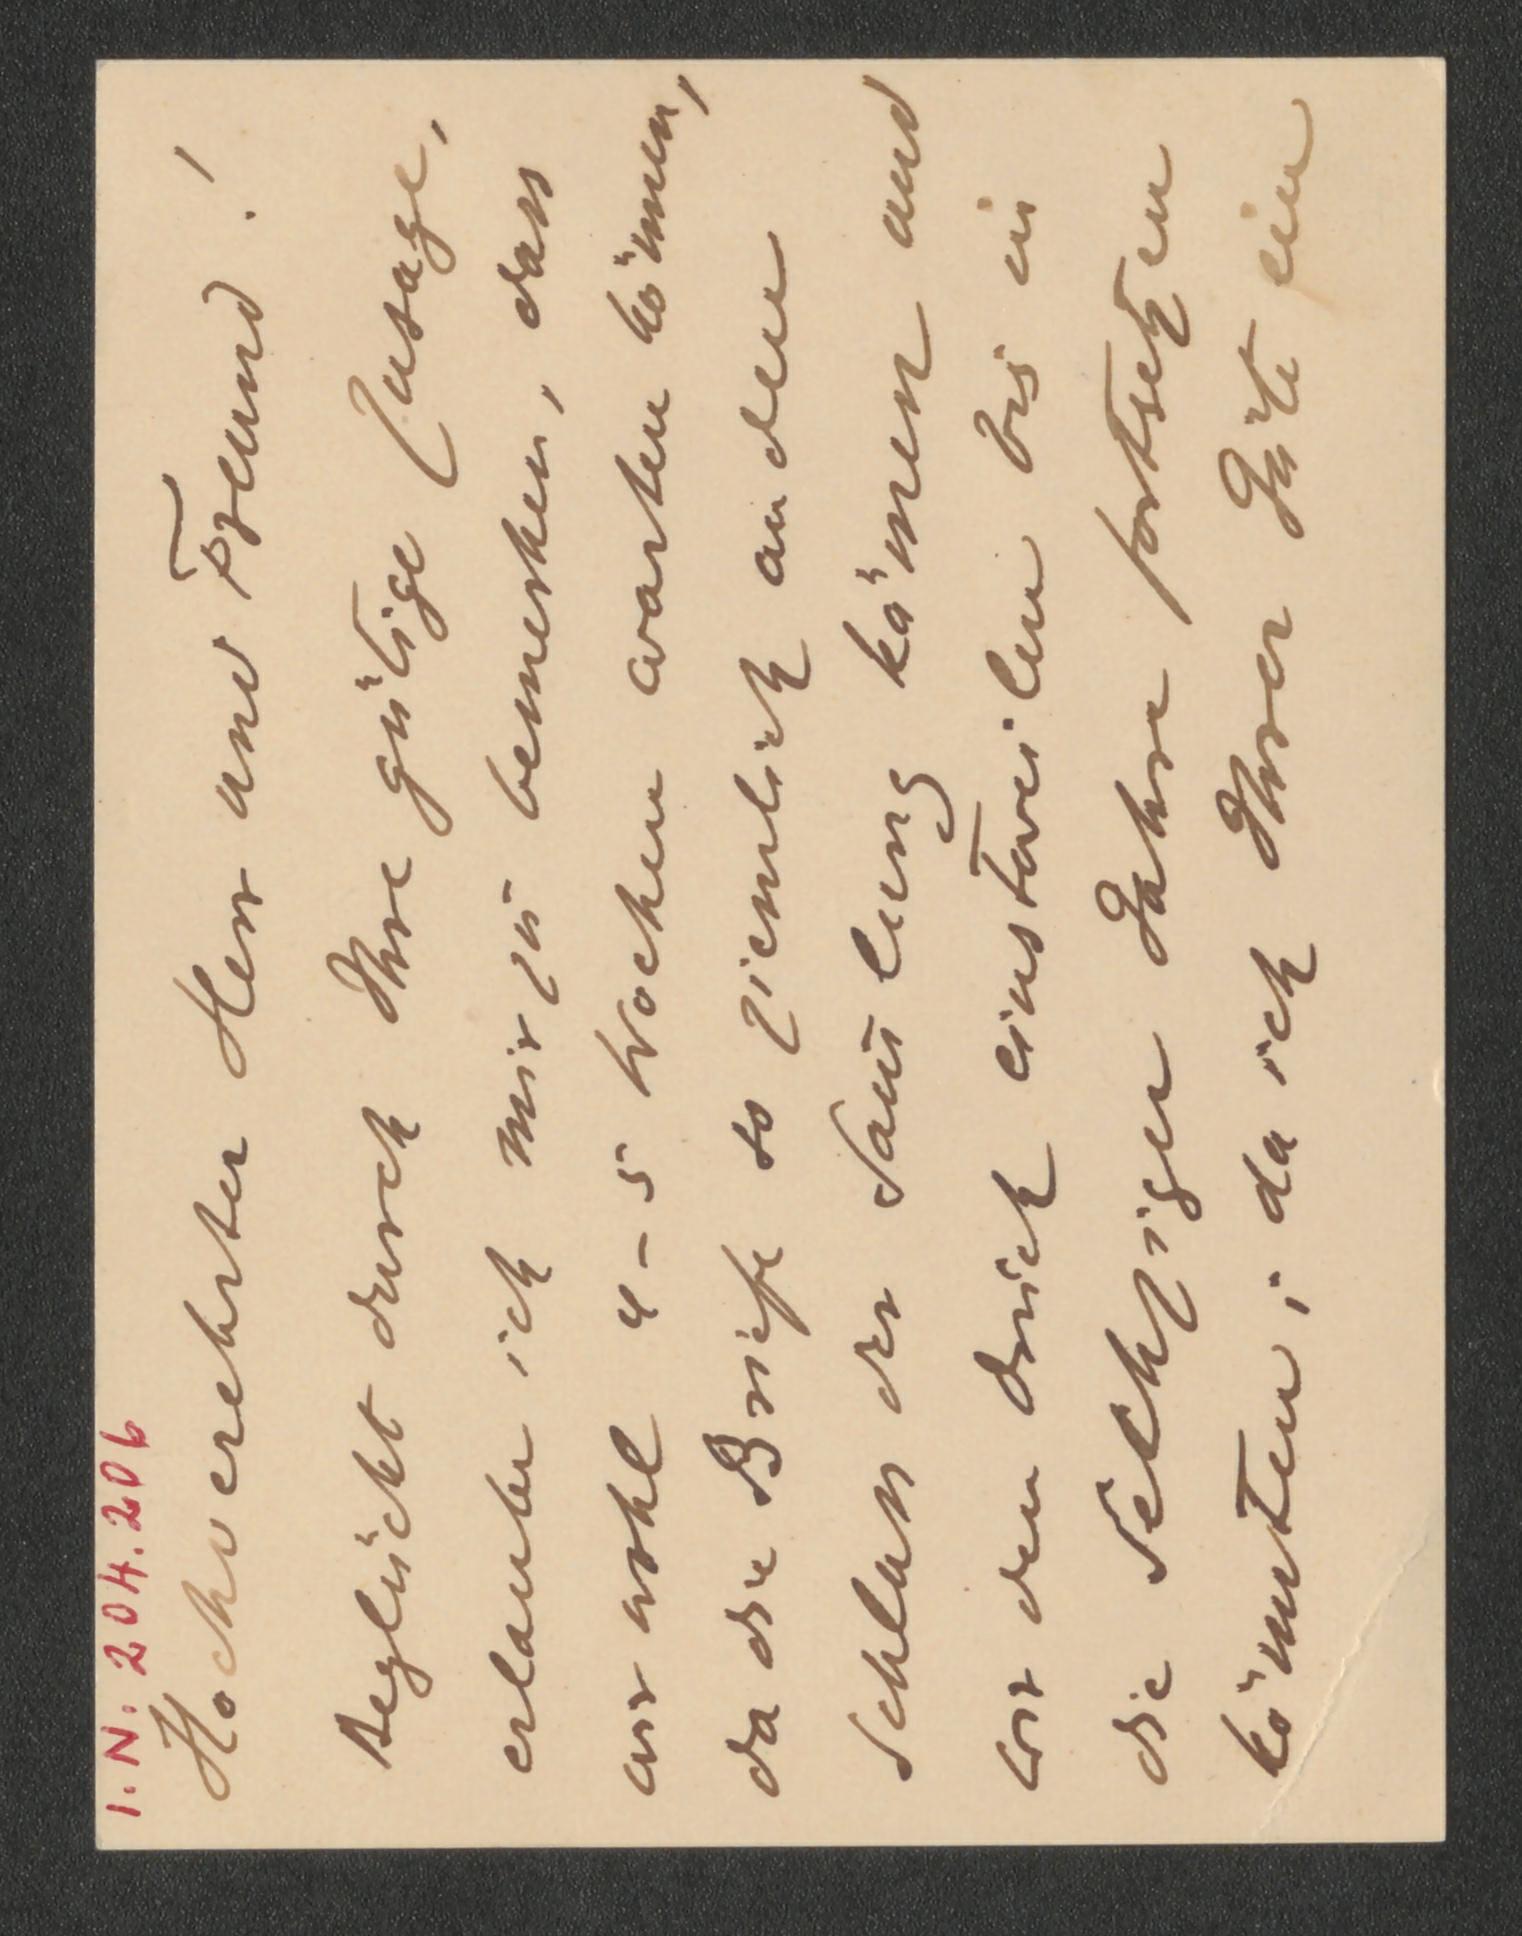 I.N. 204.206
Hochverehrter Herr und Freund!
Beglückt durch Ihre gütige Zusage,
erlaube ich mir zu bemerken, dass
wir wohl 4-5 Wochen warten können,
da die Briefe so ziemlich an den
Schluss der Samlung kämen und
wir den Druck einstweilen bis in
die Sechziger Jahre fortsetzen
könnten; da ich Ihrer Güte ein